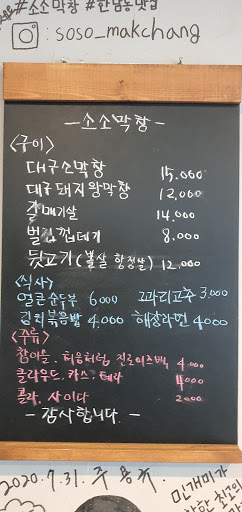 #소소막창 #한남동맛집
: soso_makchang
- 소소막창 -
<구이>
대구소막창 15,000
대구돼지왕막창 12,000
갈매기살 14,000
벌집껍데기 8,000
뒷고기 (볼살 항정살) 12,000
<식사>
얼큰순두부 6000 꼬과리고추 3,000
김치볶음밥 4,000 해장라면 4000
<주류>
참이슬, 처음처럼, 진로이즈백 4,000
클라우드, 카스, 테라 4,000
콜라, 사이다 2000
- 감사합니다 -
2020.7.31.
민개미가
최고의